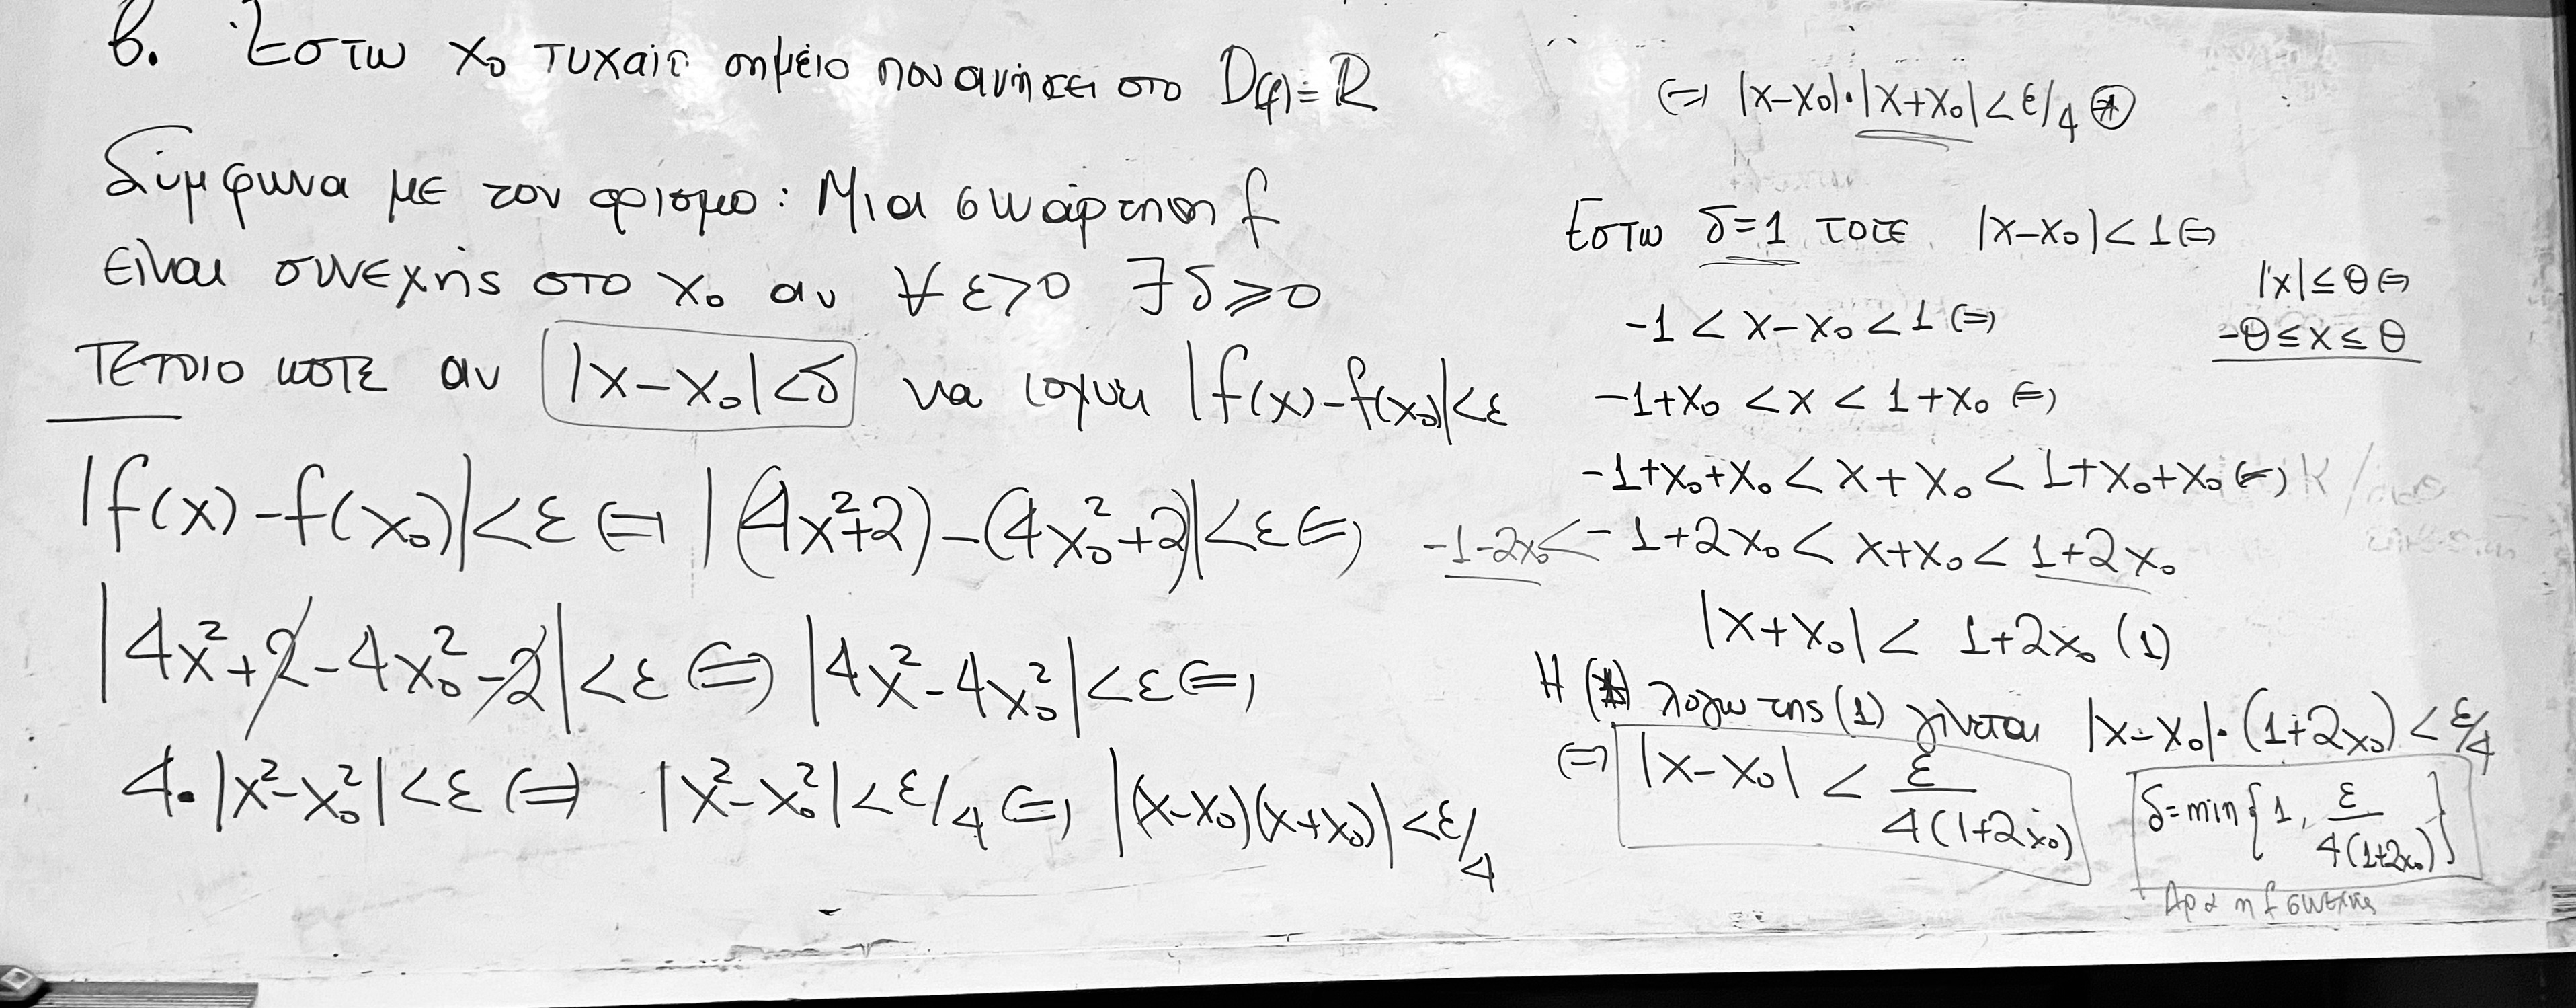 β. Έστω x₀ τυχαίο σημείο που ανήκει στο D(f)=R
Σύμφωνα με τον ορισμο: Μια συνάρτηση f
είναι συνεχής στο x₀ αν ∀ ε>0 ∃ δ⩾0
τέτοιο ωστε αν |x-x₀|<δ να ισχυει |f(x)-f(x₀)|<ε
|f(x)-f(x₀)|<ε ⇔ |(4x²+2)-(4x₀²+2)|<ε ⇔
|4x²+2-4x₀²-2|<ε ⇔ |4x²-4x₀²|<ε ⇔
4·|x²-x₀²|<ε ⇔ |x²-x₀²|<ε/4 ⇔ |(x-x₀)(x+x₀)|<ε/4
⇔ |x-x₀|·|x+x₀|<ε/4 (*)
Εστω δ=1 τοτε |x-x₀|<1 ⇔
|x|≤θ ⇔
-1<x-x₀<1 ⇔
-θ≤x≤θ
-1+x₀<x<1+x₀ ⇔
-1+x₀+x₀<x+x₀<1+x₀+x₀ ⇔
-1-2x₀<-1+2x₀<x+x₀<1+2x₀
|x+x₀|<1+2x₀ (1)
Η (*) λογω της (1) γίνεται |x-x₀|·(1+2x₀)<ε/4
⇔ |x-x₀|<ε/4(1+2x₀)
δ=min{1, ε/4(1+2x₀)}
Αρα η f συνεχης